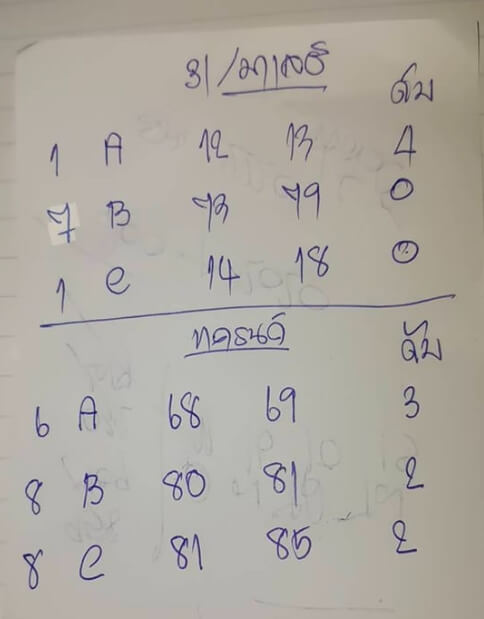 31/มาเลย์
ดับ
1 A 12 13 4
7 B 73 79 0
1 C 14 18 0
ทดรนด์ ดับ
6 A 68 69 3
8 B 80 81 2
8 C 81 85 2